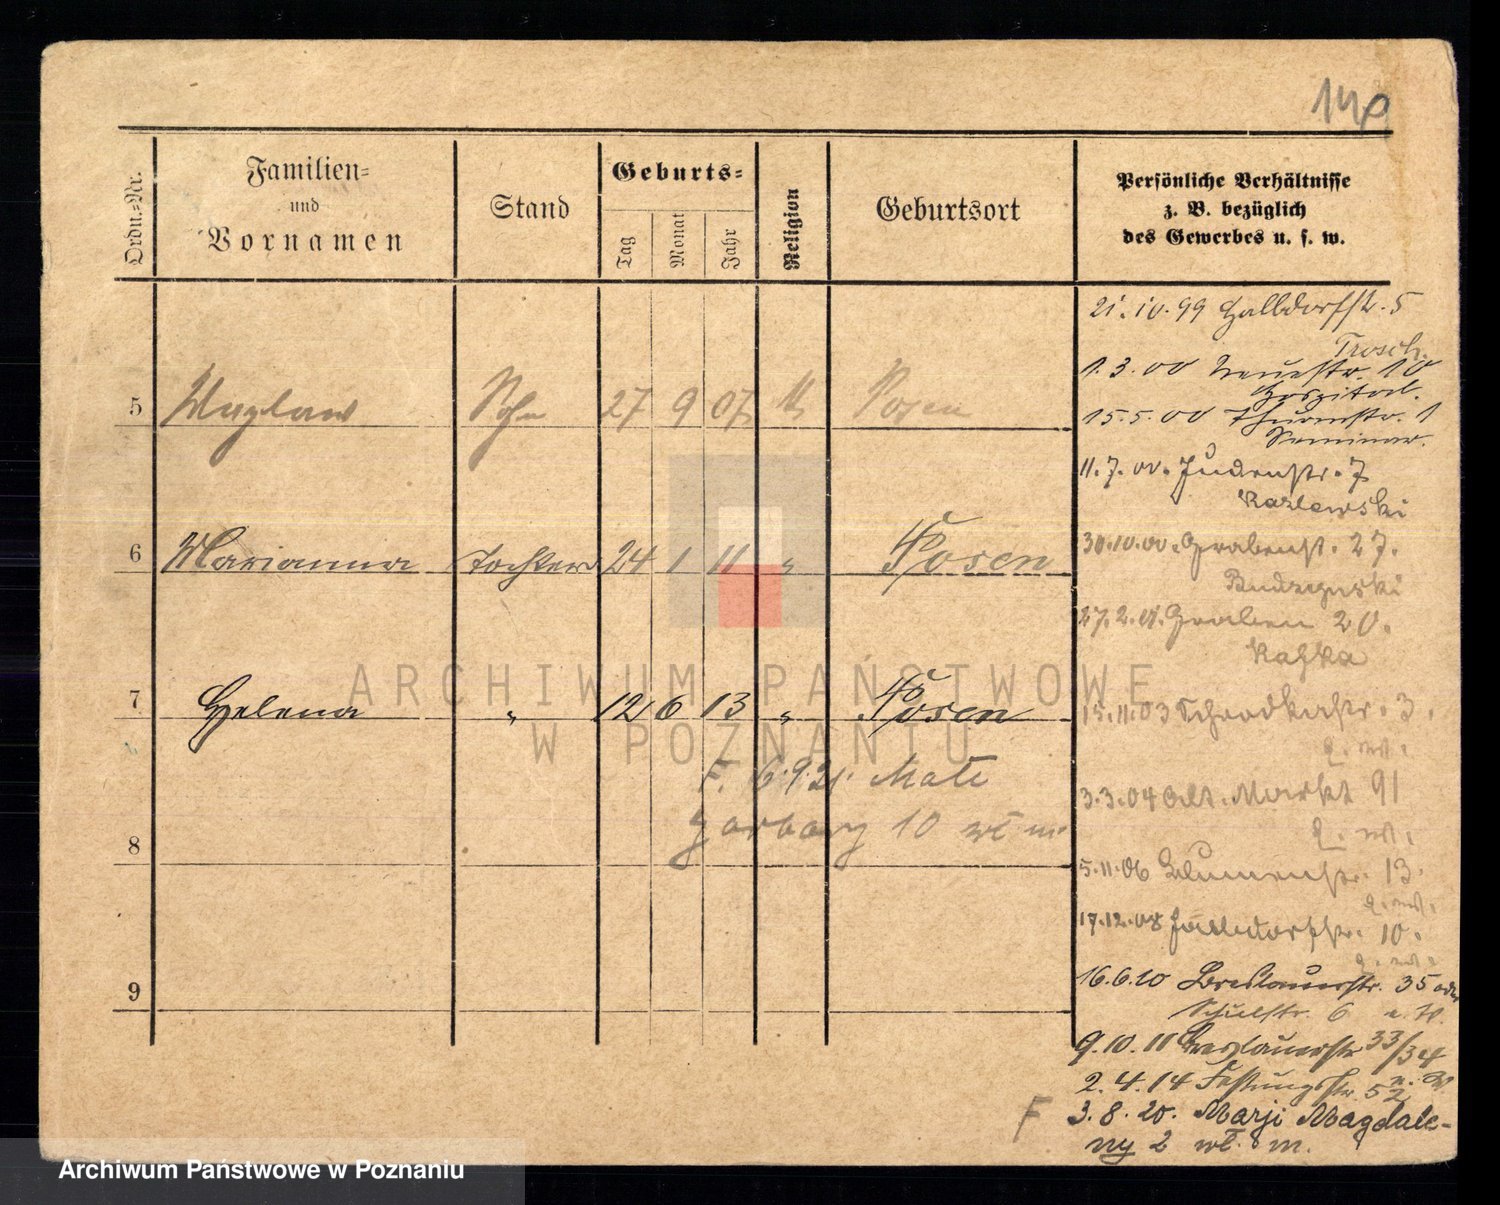 Ordn.-Nr.
Familien-
und
Vornamen
Stand
Geburts-
Tag
Monat
Jahr
Religion
Geburtsort
Persönliche Verhältnisse
z. B. bezüglich
des Gewerbes u. s. w.
5 Wazlaw Sohn 27 9 07 Posen
6 Marianna Tochter 24 1 11 " Posen
7 Helena " 12 6 13 " Posen
F. 6.9.21. Małe
Garbary 10 wł m.
8
9
21.10.99 Halldorfstr. 5
1.3.00 Neuestr. 10
Hospital.
15.5.00 Thurmstr. 1
Seminar.
11.7.00. Judenstr. 7
Kazlewski
30.10.00. Grabenst. 27.
Budzynski
27.2.01. Graben 20.
Kafka
15.11.03 Schrodkastr. 3.
e. W.
3.3.04 Alt. Markt 91
e. W.
5.11.06 Blumenstr. 13.
e. W.
17.12.08 Halldorfstr. 10.
e. W.
16.6.10 Breslauerstr. 35 oder
Schulstr. 6 e. W.
9.10.11 Breslauerstr 33/34
2.4.14 Festungsstr. 52
F 3.8.20. Marji Magdale-
ny 2 wł. m.
ARCHIWUM PAŃSTWOWE
W POZNANIU
Archiwum Państwowe w Poznaniu